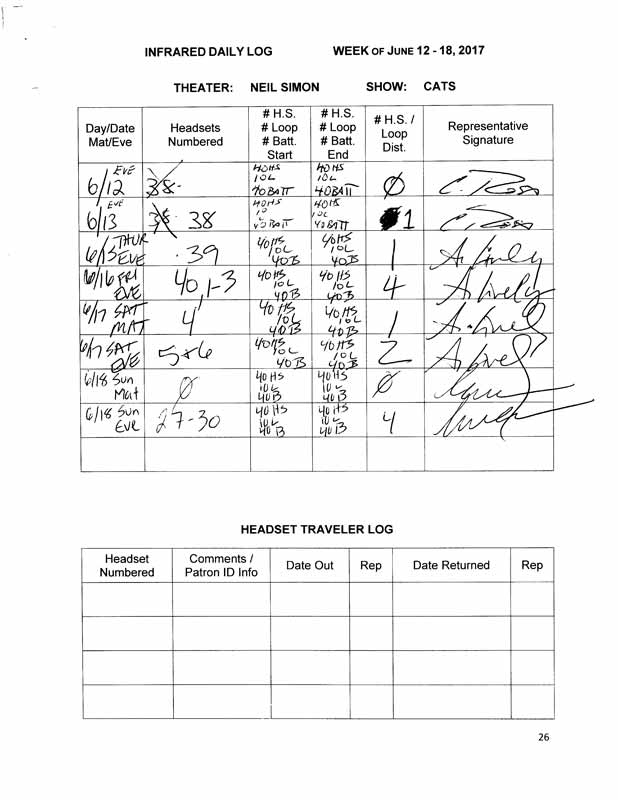 INFRARED DAILY LOG WEEK OF JUNE 12 - 18, 2017
THEATER: NEIL SIMON SHOW: CATS
Day/Date Mat/Eve Headsets Numbered # H.S. # Loop # Batt. Start # H.S. # Loop # Batt. End # H.S. / Loop Dist. Representative Signature
6/12 EVE 38- 40HS 10L 40BATT 40HS 10L 40BATT Ø
6/13 EVE 38 38 40HS 10L 40BATT 40HS 10L 40BATT 1
6/15 THUR EVE 39 40HS 10L 40B 40HS 10L 40B 1 A. Lively
6/16 FRI EVE 40, 1-3 40HS 10L 40B 40HS 10L 40B 4 A Lively
6/17 SAT MAT 4 40HS 10L 40B 40HS 10L 40B 1
6/17 SAT EVE 5+6 40HS 10L 40B 40HS 10L 40B 2
6/18 Sun Mat Ø 40HS 10L 40B 40HS 10L 40B Ø
6/18 Sun Eve 27-30 40HS 10L 40B 40HS 10L 40B 4
HEADSET TRAVELER LOG
Headset Numbered Comments / Patron ID Info Date Out Rep Date Returned Rep
26